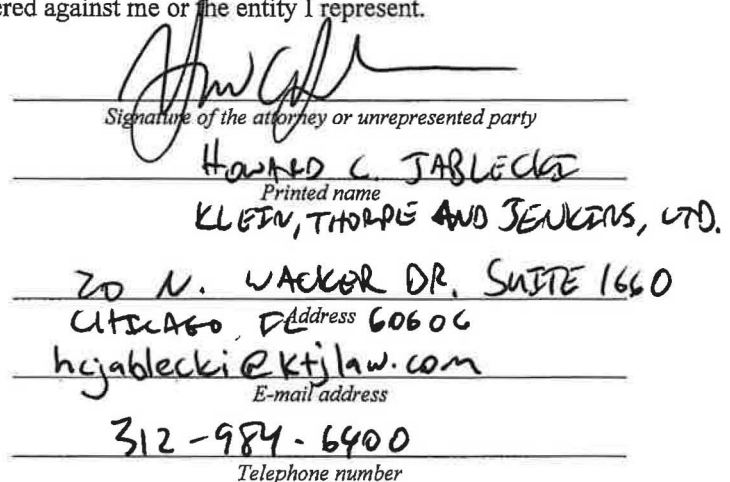 ered against me or the entity I represent.
Signature of the attorney or unrepresented party
HOWARD C. JABLECKI
Printed name
KLEIN, THORPE AND JENKINS, LTD.
20 N. WACKER DR. SUITE 1660
CHICAGO, IL Address 60606
hcjablecki@ktjlaw.com
E-mail address
312-984-6400
Telephone number